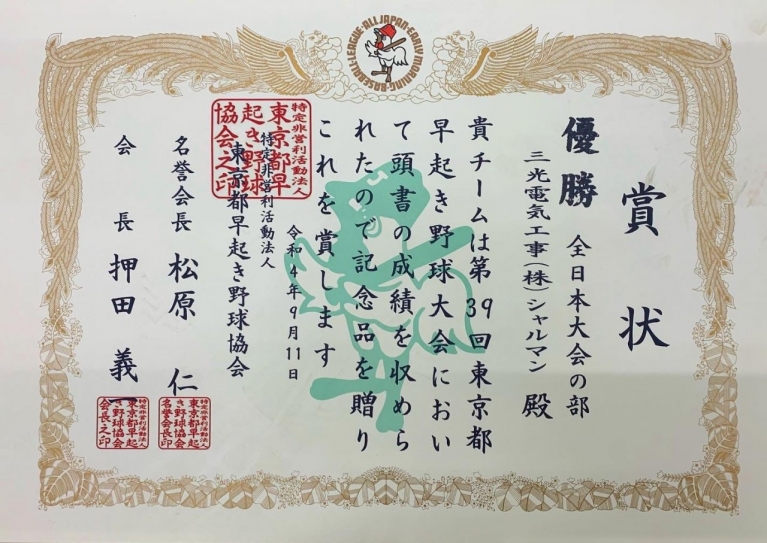 ALL JAPAN EARLY MORNING BASEBALL LEAGUE
賞状
優勝 全日本大会の部
三光電気工事(株)シャルマン 殿
貴チームは第39回東京都
早起き野球大会におい
て頭書の成績を収めら
れたので記念品を贈り
これを賞します
令和4年9月11日
特定非営利活動法人
東京都早起き野球協会
特定非営利活動法人
東京都早
起き野球
協会之印
名誉会長 松原 仁
特定非営利活動法人
東京都早起
き野球協会
名誉会長印
会長 押田 義一
特定非営利活動法人
東京都早起
き野球協会
会長之印